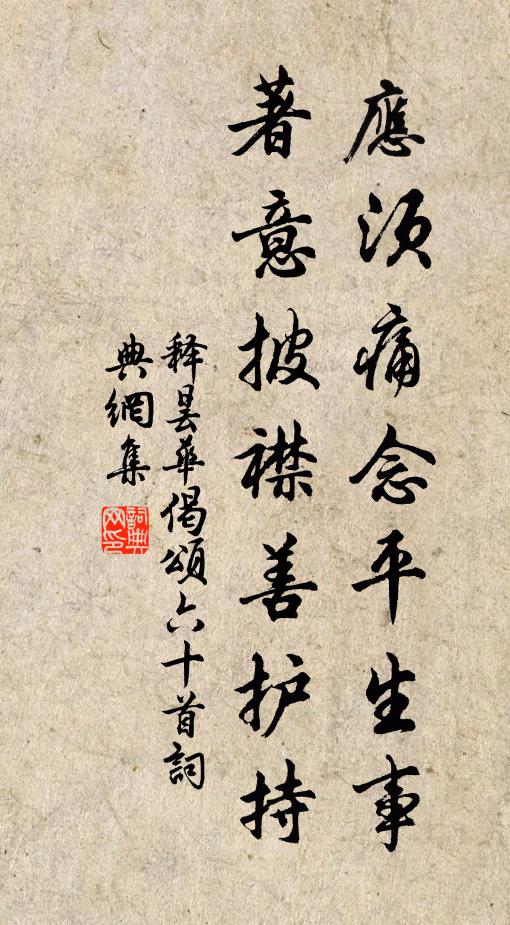 應須痛念平生事
著意披襟善护持
釋曇華偈頌六十首詞
典網集
詞典
网印